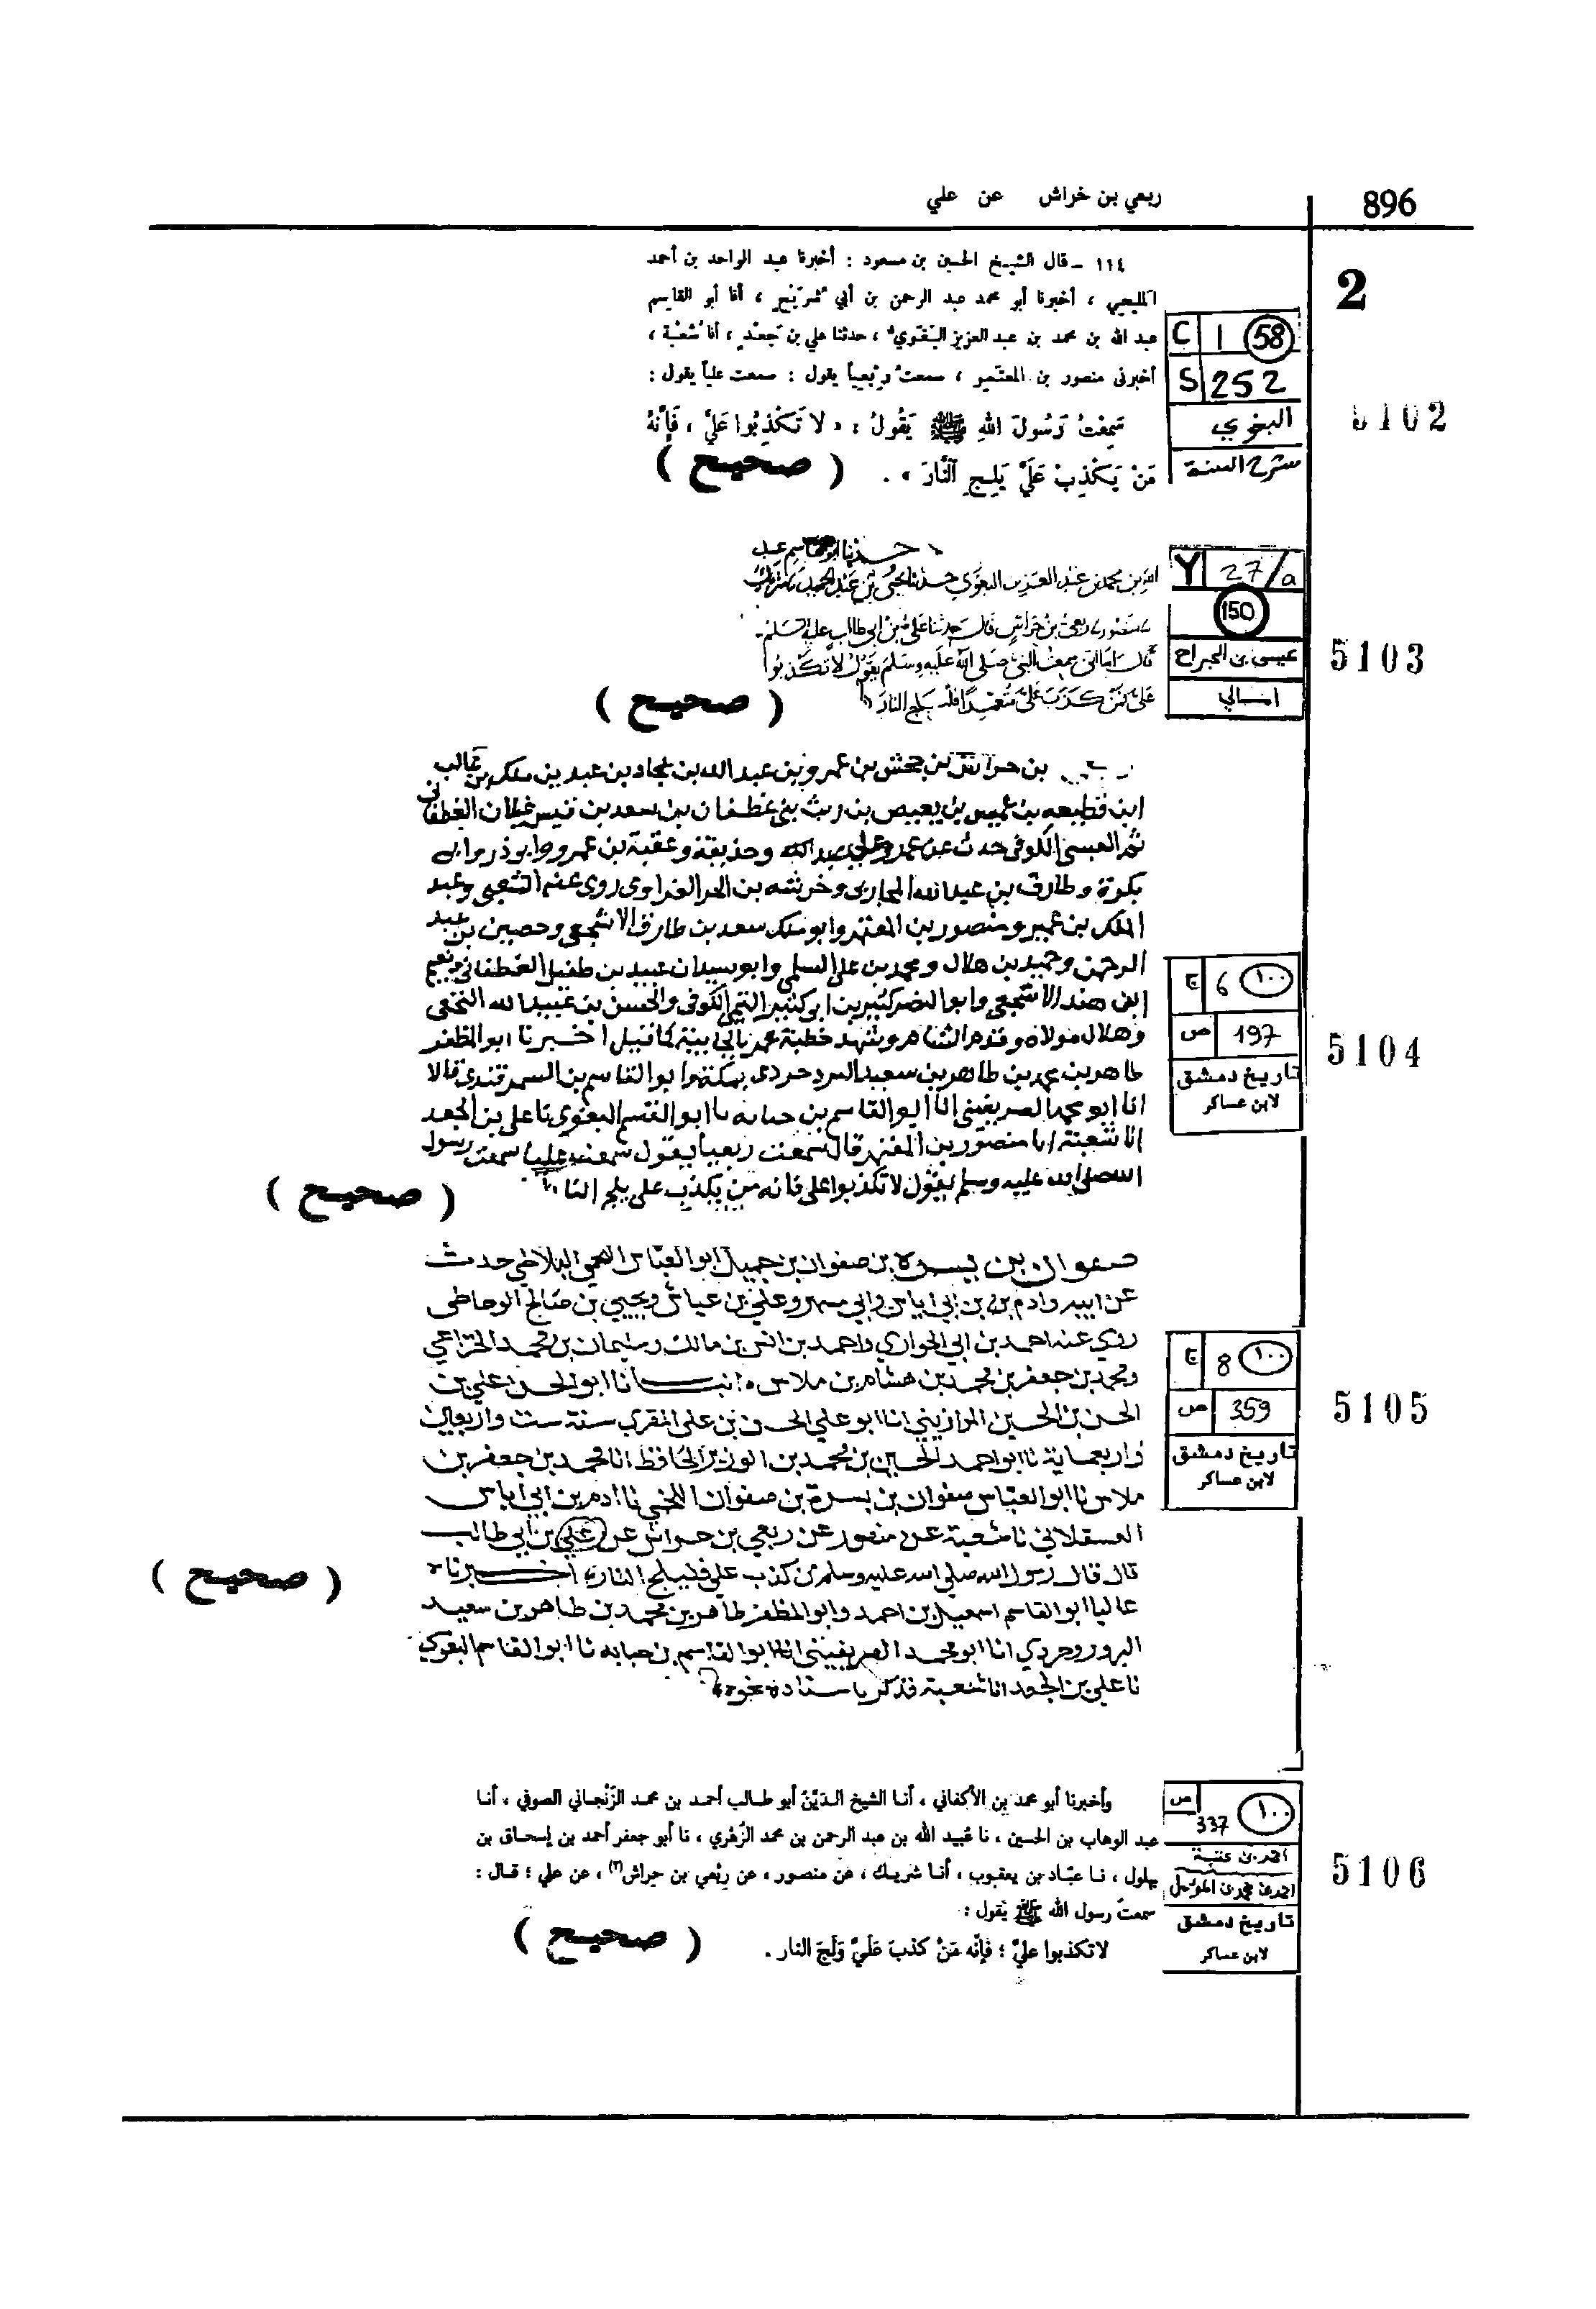 896
ربعي بن خراش عن علي
2
١١٤ ـ قال الشيخ الحسين بن مسعود : أخبرنا عبد الواحد بن أحمد
المليحي ، أخبرنا أبو محمد عبد الرحمن بن أبي شريح ، أنا أبو القاسم
عبد الله بن محمد بن عبد العزيز البَغَوي ، حدثنا علي بن جَعْد ، أنا شُعْبة ،
أخبرني منصور بن المعتمر ، سمعتُ رِبْعياً يقول : سمعت علياً يقول :
سَمِعْتُ رَسُولَ اللهِ ﷺ يَقُولُ : « لا تَكْذِبُوا عَلَيَّ ، فَإِنَّهُ
مَنْ يَكْذِبْ عَلَيَّ يَلِجِ النَّارَ » .
( صحيح )
C 1 58
S 252
البغوي
شرح السنة
5102
حدثنا ابو القاسم عبد
الله بن محمد بن عبد العزيز البغوي حدثنا يحيى بن عبد الحميد شريك
منصور ربعي بن خراش قال حدثنا علي بن ابي طالب عليه السلم
قال اني سمعت النبي صلى الله عليه وسلم يقول لا تكذبوا
على فمن كذب على متعمدا فلـ يلج النار
( صحيح )
Y 27/a
150
عيسى بن الجراح
امالي
5103
بن حراش بن جحش بن عمرو بن عبد الله بن بجاد بن عبد بن ملك بن غالب
ابن قطيعه بن عبس بن بغيض بن ريث بن غطفان بن سعد بن قيس غيلان الغطفاني
ثم العبسي الكوفي حدث عن عمر وعلي وحذيفة وعقبة بن عمرو وابو ذر وابي
بكرة وطارق بن عبد الله المحاربي وخرشه بن الحر الفزاوي روى عنه الشعبي وعبد
الملك بن عمير ومنصور بن المعتمر وابو ملك سعد بن طارق الاشجعي وحصين بن عبد
الرحمن وحميد بن هلال ومحمد بن علي السلمي وابو سيدان عبيد بن طفيل الغطفاني ونعيم
ابن هند الاشجعي وابو النضر كثير بن ابي كثير التيمي الكوفي والحسن بن عبيد الله النخعي
وهلال مولاه وقدم الشام وشهد خطبة عمر بالجابية كما قيل اخبرنا ابو المظفر
طاهر بن محمد بن طاهر بن سعيد البروجردي وابو القاسم بن السمرقندي قالا
انا ابو محمد الصريفيني انا ابو القاسم بن حبابه نا ابو القسم البغوي نا علي بن الجعد
انا شعبة انا منصور بن المعتمر قال سمعت ربعيا يقول سمعت عليا سمعت رسول
الله صلى الله عليه وسلم يقول لا تكذبوا على فانه من يكذب على يلج النا
( صحيح )
ج 6 ١٠٠
ص 197
تاريخ دمشق
لابن عساكر
5104
صفوان بن يسرة بن صفوان بن جميل ابو العباس اللخمي البلاطي حدث
عن ابيه وادم بن ابي اياس وابي مسهر وعلي بن عياش ويحيى بن صالح الوحاظي
روى عنه احمد بن ابي الحواري واحمد بن انس بن مالك وسليمان بن محمد الخزاعي
ومحمد بن جعفر بن محمد بن هشام بن ملاس انبانا ابو الحسن علي بن
الحسن بن الحسين الموازيني انا ابو علي الحسن بن علي المقري سنة ست واربعين
واربعماية نا ابو احمد الحسين بن محمد بن الوزير الحافظ انا محمد بن جعفر بن
ملاس نا ابو العباس صفوان بن يسرة بن صفوان اللخمي نا ادم بن ابي اياس
العسقلاني نا شعبة عن منصور عن ربعي بن حراش عن علي بن ابي طالب
قال قال رسول الله صلى الله عليه وسلم من كذب علي فليلج النار اخبرناه
عاليا ابو القاسم اسمعيل بن احمد وابو المظفر طاهر بن محمد بن طاهر بن سعيد
البروجردي انا ابو محمد الصريفيني انا ابو القاسم بن حبابه نا ابو القاسم البغوي
نا علي بن الجعد انا شعبة فذكر باسناده نحوه
( صحيح )
ج 8 ١٠٠
ص 359
تاريخ دمشق
لابن عساكر
5105
وأخبرنا أبو محمد بن الأكفاني ، أنا الشيخ الدَيّنُ أبو طالب أحمد بن محمد الزَنْجاني الصوفي ، أنا
عبد الوهاب بن الحسين ، نا عُبيد الله بن عبد الرحمن بن محمد الزُهْري ، نا أبو جعفر أحمد بن إسحاق بن
بهلول ، نا عبّاد بن يعقوب ، أنا شريك ، عن منصور ، عن رِبْعي بن حِراش(٢) ، عن علي ؛ قال :
سمعتُ رسول الله ﷺ يقول :
لا تكذبوا عليَّ ؛ فإنّه مَنْ كذبَ عَلَيَّ وَلَجَ النار .
( صحيح )
ص 337 ١٠٠
احمد بن عتبة
احمد بن محمد بن المؤمل
تاريخ دمشق
لابن عساكر
5106